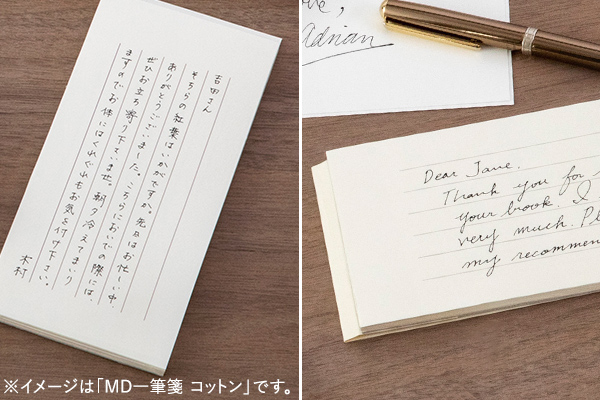 吉田さん
そちらの紅葉はいかがですか。先日はお忙しい中、
ありがとうございました。こちらにおいでの際には、
ぜひお立ち寄り下さいませ。朝夕冷えてまいり
ますのでお体にはくれぐれもお気を付け下さい。
木村
※イメージは「MD一筆箋 コットン」です。
Adrian
Dear Jane,
Thank you for
your book. I
very much.
my recommen